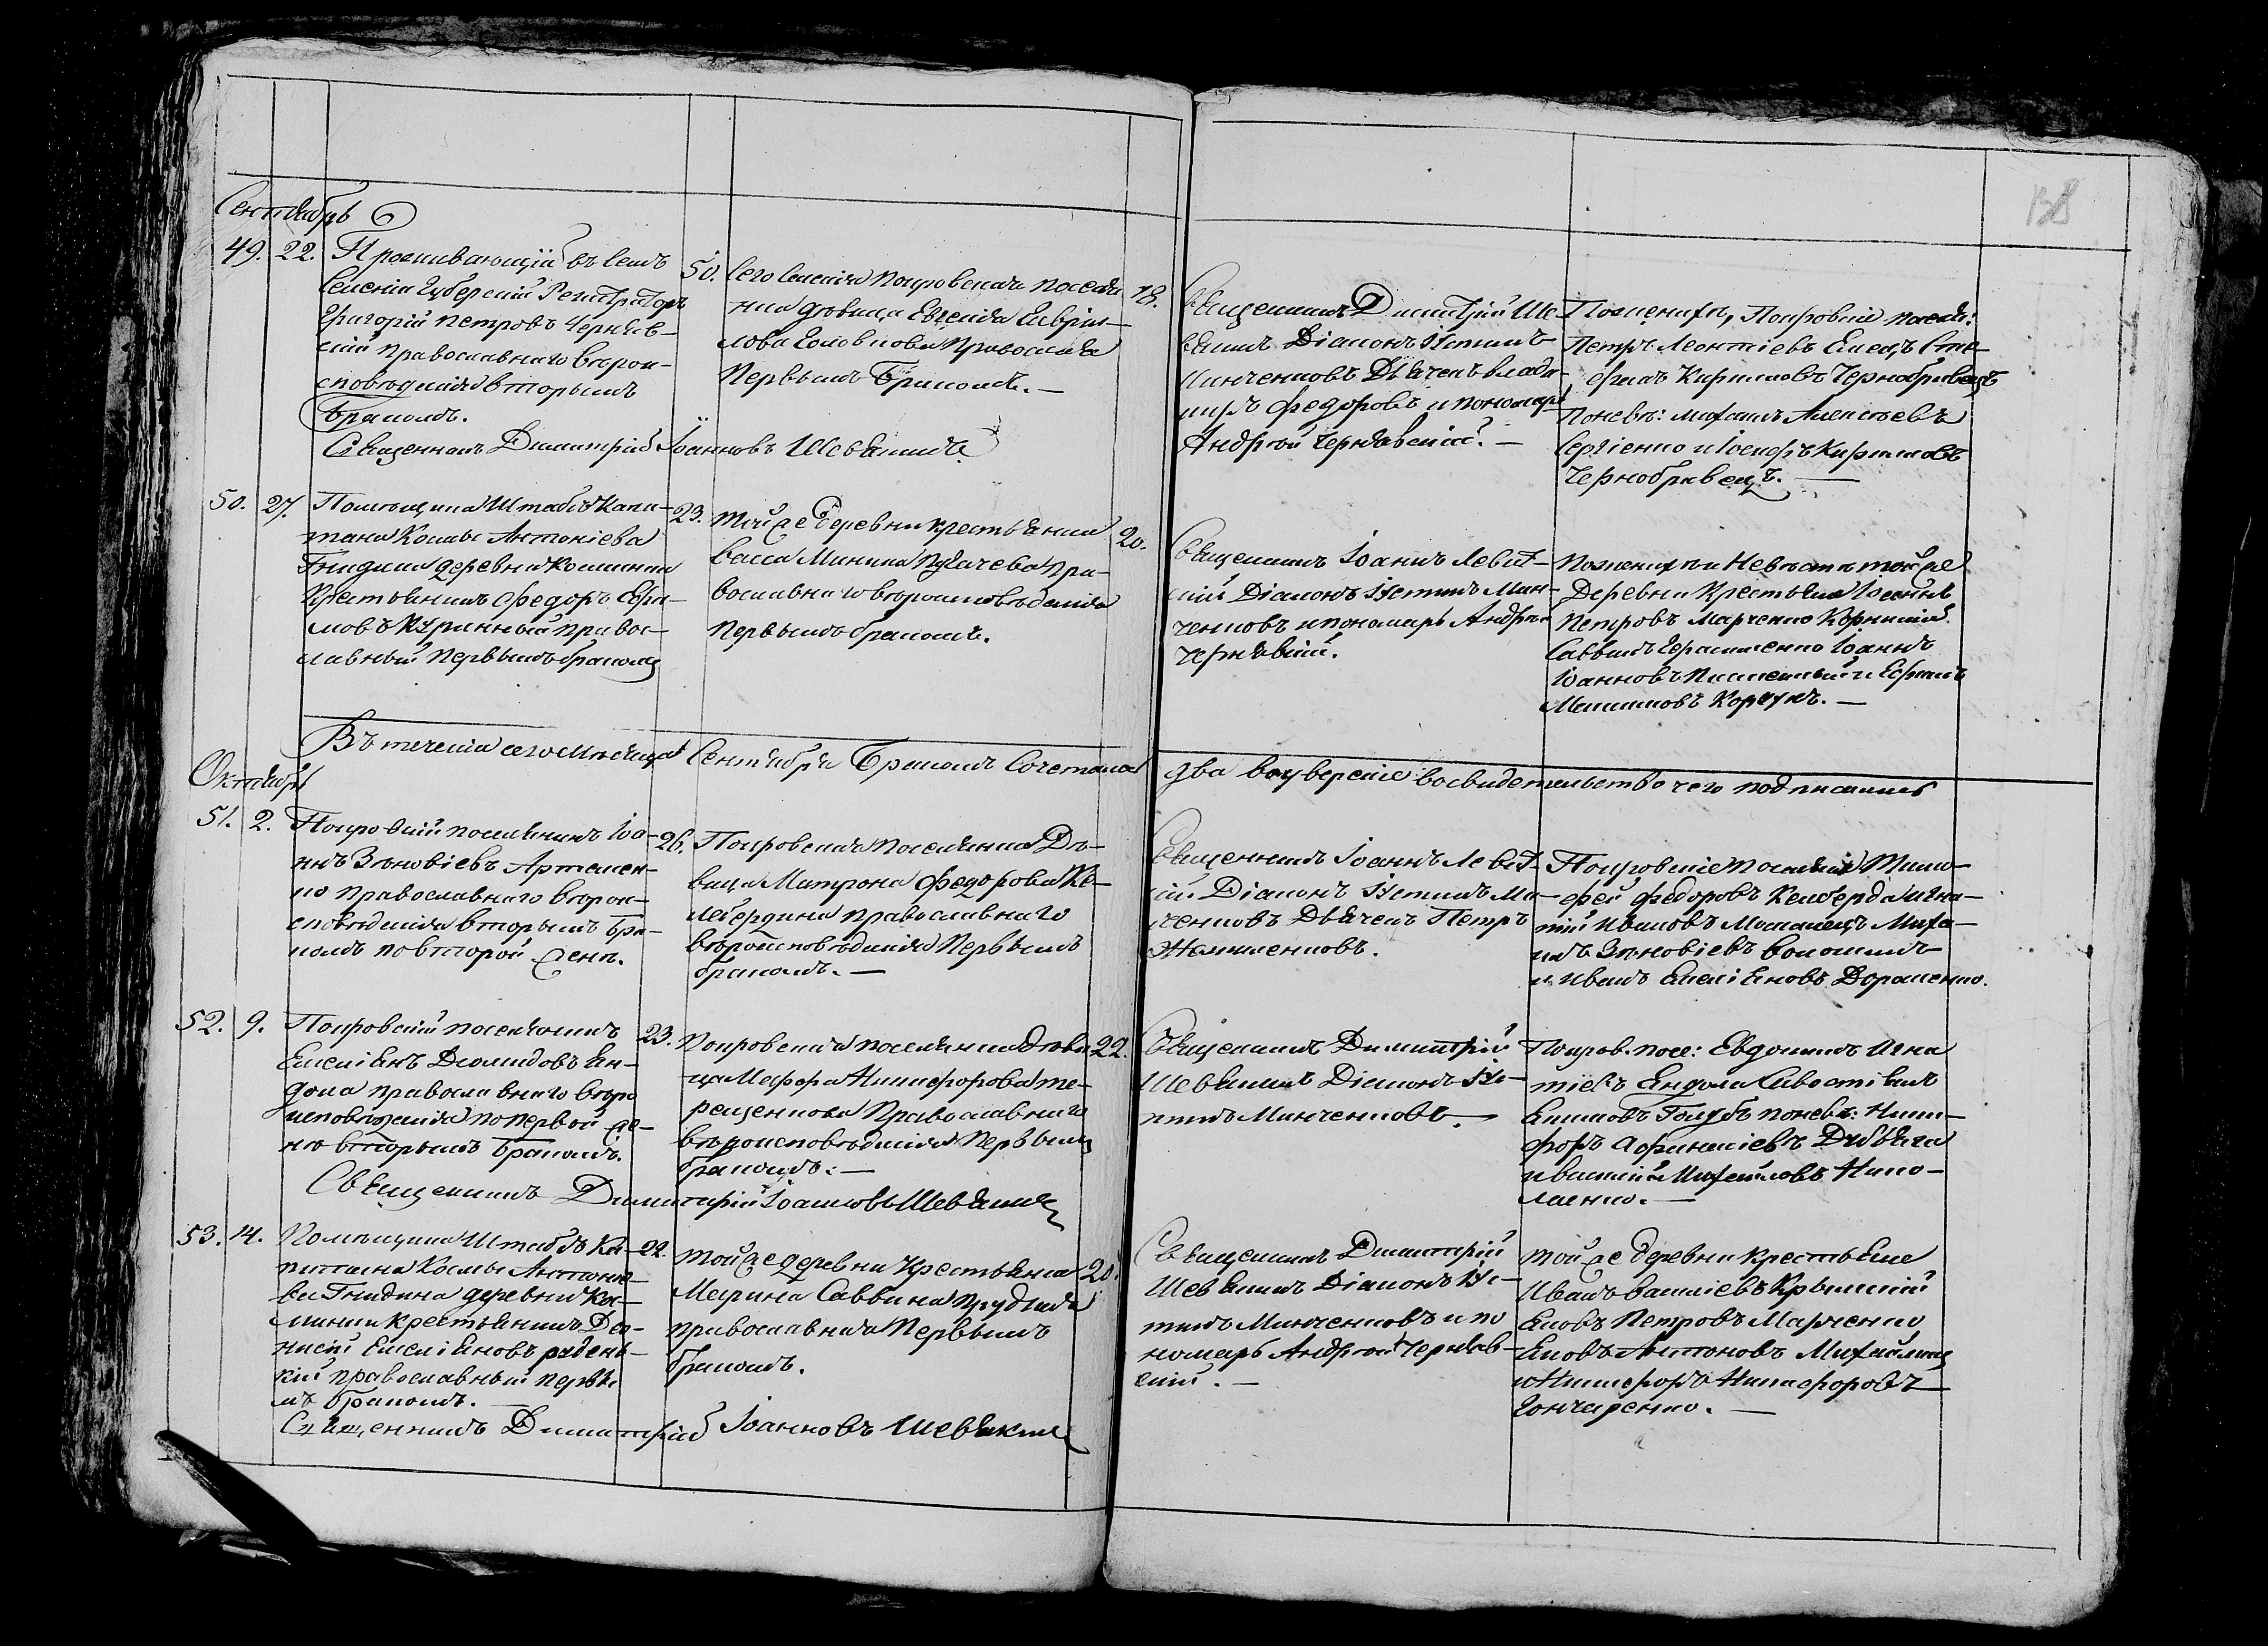 138
Сентябрь
49. 22. Проживающій въ семъ
селеніи Губерскій Регистраторъ
Григорій Петровъ Чернявскій
православнаго вѣроисповѣданія
вторымъ
бракомъ.
50. Сего селенія Покровская поселянка
дѣвица
Головкова Православная
Первымъ бракомъ. —
18.
Священникъ Димитрій Шевякинъ
Діаконъ Устинъ
Минченковъ Дьячекъ Владимиръ
Федоровъ и пономарь
Андрей Чернявскій. —
По женихѣ, Покровскіе посел:
Петръ Леонтіевъ Емецъ
Кириловъ Чернобривецъ
Поневѣ: Михаилъ Алексѣевъ
Сергіенко и Іосифъ Кириловъ
Чернобривецъ. —
Священникъ Димитрій Іоанновъ Шевякинъ
50. 27. Помѣщика Штабсъ Капитана
Космы Антоніева
Гнидина деревни Космина
Крестьянинъ Федоръ
православный
Первымъ бракомъ
23. Той же деревни крестьянка
Васса Минина Пугачева православнаго
вѣроисповѣданія
Первымъ бракомъ.
20.
Священникъ Іоаннъ Левитскій
Діаконъ Устинъ Минченковъ
и пономарь Андрей
Чернявскій.
По женихѣ и Невѣстѣ той же
Деревни Крестьяне
Петровъ Марченко Корнилій
Саввинъ Герасименко Іоаннъ
Іоанновъ
Коржукъ. —
Въ теченіи сего мѣсяца Сентября Бракомъ Сочеталось два воувереніе восвидетельство чего подписались
Октябрь
51. 2. Покровскій поселянинъ Іоаннъ
Зѣновіевъ Артеменко
православнаго вѣроисповѣданія
вторымъ бракомъ
по второй женѣ.
26. Покровская поселянка Дѣвица
Матрона Федорова Келебердина
православнаго
вѣроисповѣданія Первымъ
бракомъ. —
Священникъ Іоаннъ Левитскій
Діаконъ Устинъ Минченковъ
Дьячекъ Петръ
Покровскіе поселяне Тимофей
Федоровъ Келеберда Игнатій
Ивановъ Михаилъ
Зѣновіевъ Волошинъ
и Иванъ Емеліяновъ Дорошенко.
52. 9. Покровскій поселянинъ
Емеліянъ Діомидовъ Яндола
православнаго вѣроисповѣданія
по первой женѣ
вторымъ бракомъ.
23. Покровская поселянка дѣвица
Марфа Никифорова Терещенкова
Православнаго
вѣроисповѣданія Первымъ
бракомъ. —
22.
Священникъ Димитрій
Шевякинъ Діаконъ Устинъ
Минченковъ. —
Покров. посе: Евдокимъ Игнатіевъ
Яндола Савостіянъ
Екимовъ Голубъ поневѣ: Никифоръ
Афанасіевъ
и Василій Михайловъ Николаенко. —
Священникъ Димитрій Іоанновъ Шевякинъ
53. 14. Помѣщика Штабсъ Капитана
Космы Антоніева
Гнидина деревни Космини
крестьянинъ Діонисій
Емеліяновъ Руденькій
православный первымъ
бракомъ. —
22. Той же деревни крестьянка
Марина Саввина
православная Первымъ
бракомъ.
20.
Священникъ Димитрій
Шевякинъ Діаконъ Устинъ
Минченковъ и пономарь
Андрей Чернявскій. —
Той же деревни крестьяне
Иванъ Василіевъ Крымскій
Яковъ Петровъ Марченко
Яковъ Антоновъ
и Никифоръ Никифоровъ
Гончаренко. —
Священникъ Димитрій Іоанновъ Шевякинъ